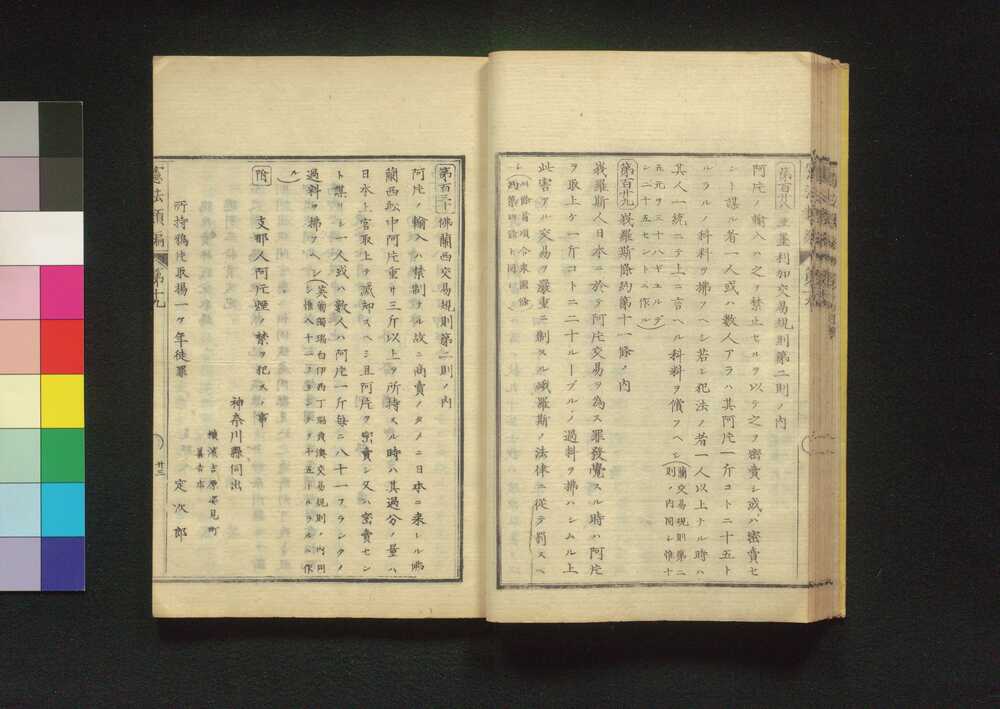 第百廿八 亜墨利加交易規則第二則ノ内
阿片ノ輸入ハ之ヲ禁止セルヲ以テ之ヲ密賣シ或ハ密賣セ
シト謀ル者一人或ハ数人アラハ其阿片一斤コトニ十五ト
ルラルノ科料ヲ拂フヘシ若シ犯法ノ者一人以上ナル時ハ
其人一統ニテ上ニ言ヘル科料ヲ償フヘシ(蘭交易規則第二
則ノ内同シ惟十
五元ヲ三十八ギユルデ
ン二十五セントニ作ル)
第百廿九 我羅斯條約第十一條ノ内
我羅斯人日本ニ於テ阿片交易ヲ為ス罪發覺スル時ハ阿片
ヲ取上ケ一斤コトニ二十ルーブルノ過料ヲ拂ハシムル上
此害アル交易ヲ嚴重ニ制スル峨羅斯ノ法律ニ從テ罰スヘ
シ
第百三十 佛蘭西交易規則第二則ノ内
阿片ノ輸入ハ禁制タル故ニ商賣ノタメニ日本ニ来レル佛
蘭西船中阿片重サ三斤以上ヲ所持スル時ハ其過分ノ量ハ
日本上官取上ヲ滅却スヘシ且阿片ヲ密賣シ又ハ密賣セン
ト謀リシ一人或ハ数人ハ阿片一斤毎ニ八十一フランクノ
過料ヲ拂フヘシ(英葡獨瑞白伊西丁瑞貴澳交易規則ノ内同
ル)
附 支那人阿片煙ノ禁ヲ犯ス事
神奈川縣伺出
横濱吉原姿見町
定次郎
所持鴉片取揚一ケ年徒罪
憲法類編 第十九
廿三